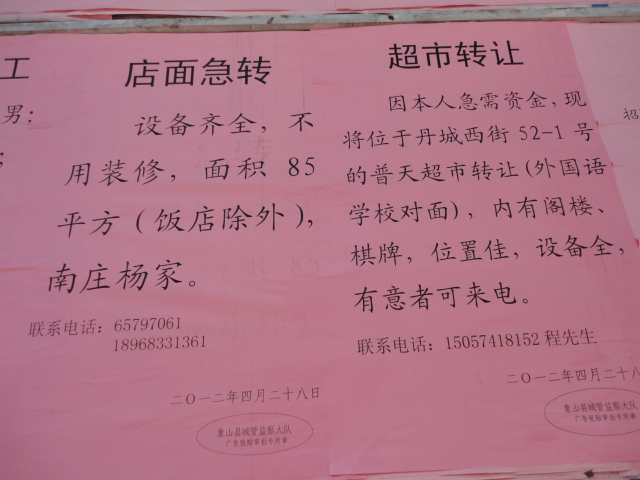 工
男；
；
店面急转
设备齐全，不
用装修，面积 85
平方（饭店除外），
南庄杨家。
联系电话：65797061
18968331361
二〇一二年四月二十八日
象山县城管监察大队
广告张贴审批专用章
超市转让
因本人急需资金，现
将位于丹城西街 52-1 号
的普天超市转让(外国语
学校对面)，内有阁楼、
棋牌，位置佳，设备全，
有意者可来电。
联系电话：15057418152 程先生
二〇一二年四月二十八
象山县城管监察大队
广告张贴审批专用章
招